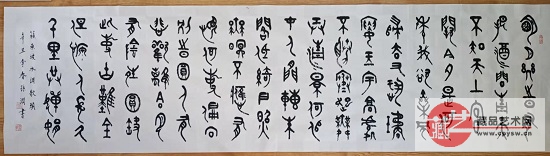 明月幾時有
把酒問青天
不知天上宮
闕今夕是何
年我欲乘風
歸去又恐瓊
樓玉宇高處
不勝寒起舞
弄清影何似
在人間轉朱
閣低綺戶照
無眠不應有
恨何事長向
別時圓人有
悲歡離合月
有陰晴圓缺
此事古難全
但願人長久
千里共嬋娟
蘇東坡水調歌頭
辛丑季春
書
藏品艺术网
www.cpysw.cn